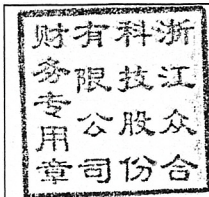 浙江众合
科技股份
有限公司
财务专用章